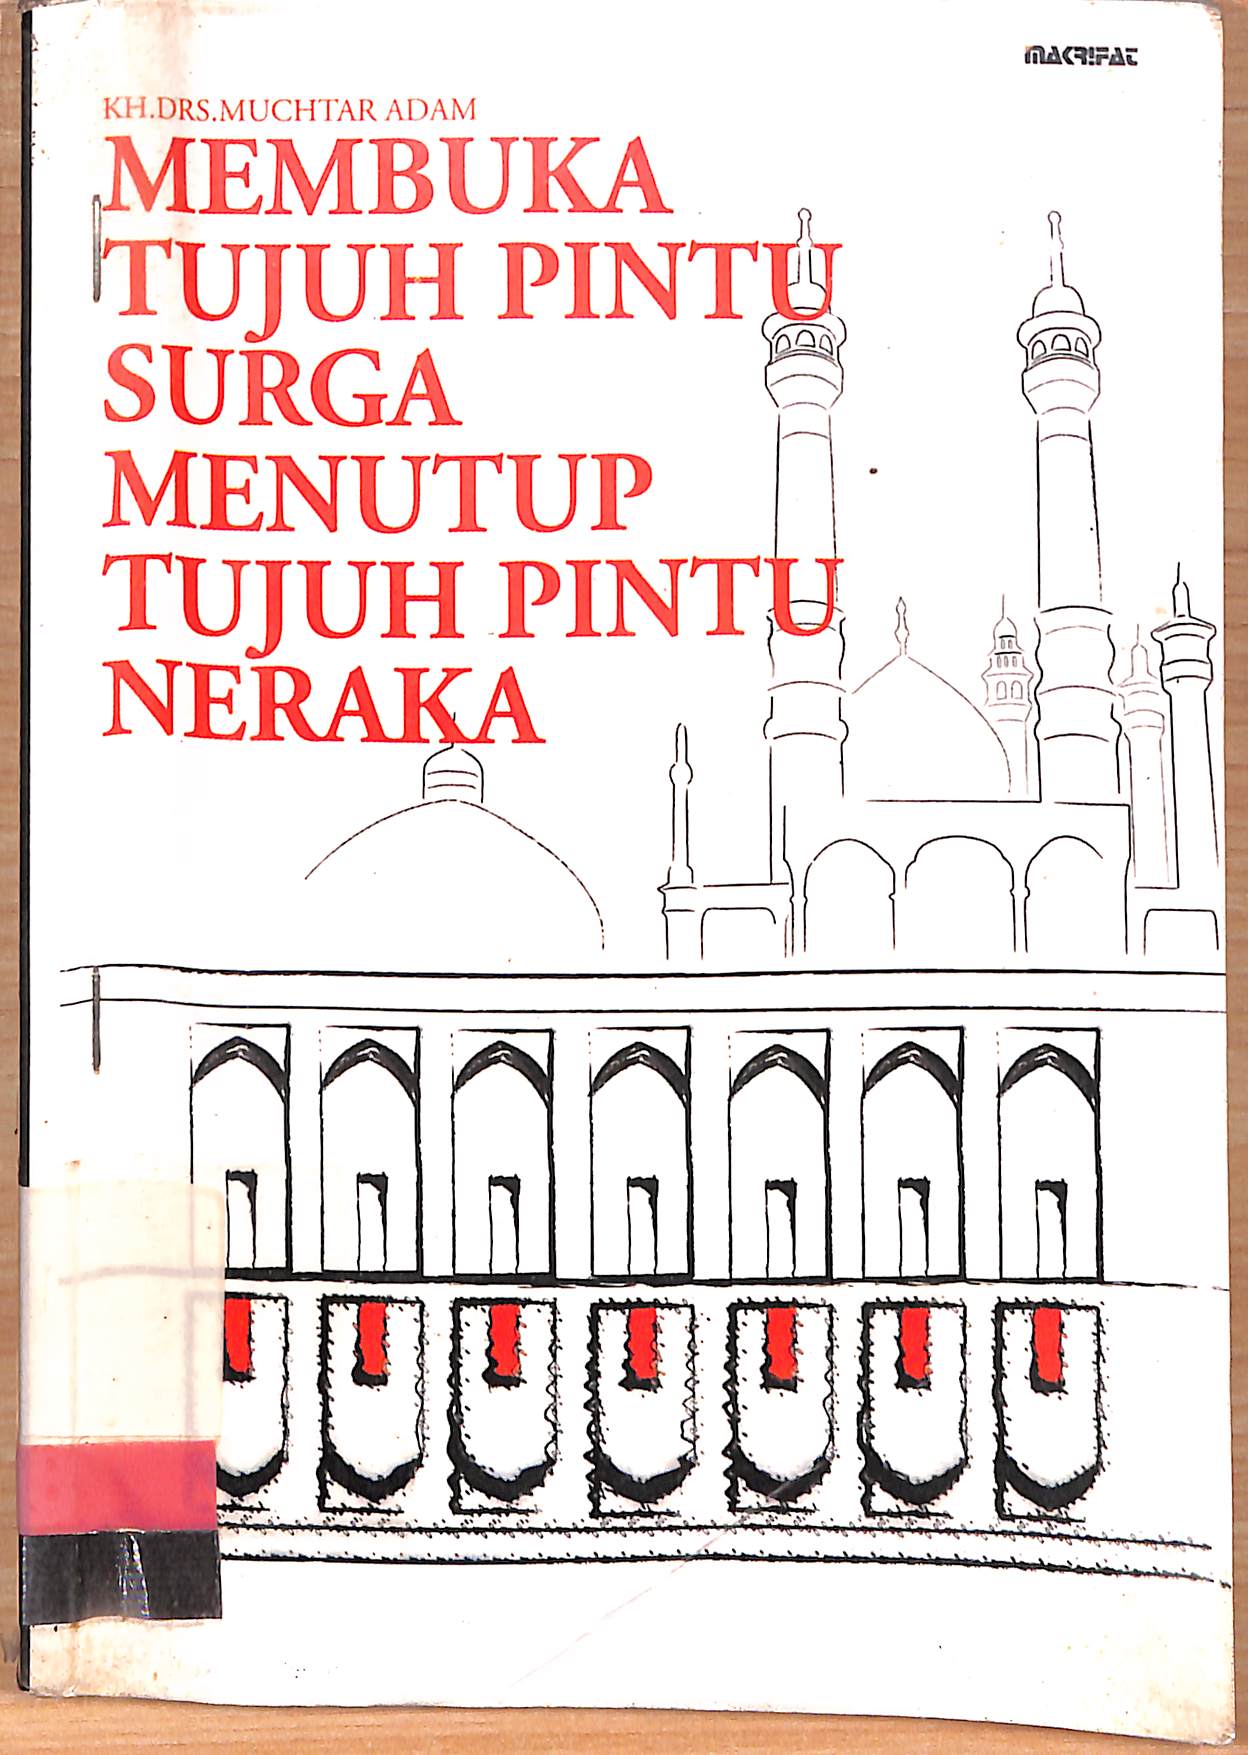 MAKRIFAT
KH.DRS.MUCHTAR ADAM
MEMBUKA
TUJUH PINTU
SURGA
MENUTUP
TUJUH PINTU
NERAKA